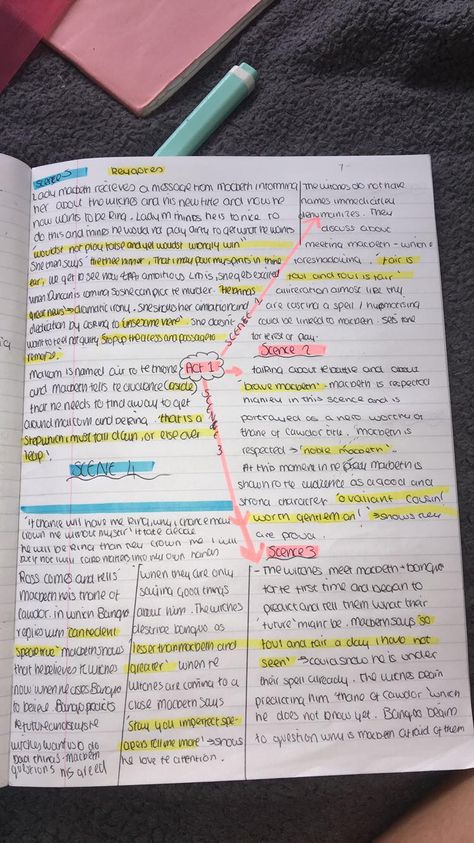 Scene 5 Key quotes
Lady macbeth recieves a message from macbeth informing
her about the witches and his new title and how he
now wants to be king. Lady m thinks he is to nice to
do this and thinks he will not play dirty to get what he wants
wouldst not play false and yet wouldst wrongly win"
She then says "hie thee hither, that I may pour my spirits in thine
ear, we get to see how ambitious Lm is, she gets excited
when Duncan is coming so she can plot the murder. Thou bring
great news → dramatic irony. She shows her ambition and
dedication by asking to 'unsex me here' She doesn't
want to feel not guilty Stop up the access and passage to
remorse.
malcom is named air to throne
and macbeth tells the audience (aside)
that he needs to find away to get
around malcom and be king. that is a
step which i must fall down, or else over
leap!
SCENE 4
'if chance will have me king, why, chance may
crown me without my stir' if fate decide
he will be king than crown me I will
not take matters into my own hands
Ross comes and tells
macbeth he is thane of
cawdor, in which Banquo
replies with can the devil
speak true' macbeth shows
that he believes the witches
now when he asks Banquo
to believe Banquo predicts
the future and says the
witches want us to do
bad things. macbeth
questions his greed
when they are only
saying good things
about him. The witches
describe banquo as
lesser than macbeth and
greater' when the
witches are coming to a
close macbeth says
'Stay you imperfect spe-
akers tell me more' → shows
he love the attention.
The witches do not have
names immedicitley
dehumanizes. They
discuss about
meeting macbeth
foreshadowing. 'fair is
foul and foul is fair'
alliteration almost like they
are casting a spell / hypnotising
could be linked to macbeth. sets tone
for the rest of play.
SCENE 2
Act 1
SCENE 3
Scence 2
talking about the battle and about
'brave macbeth' macbeth is respected
highley in this scence and is
portrayed as a hero worthy of
thane of cawdor title. macbeth is
respected → 'noble macbeth'.
At this moment in the play macbeth is
shown to the audience as a good and
strong character 'o valiant cousin'
worth gentleman!' → shows they
are proud.
Scence 3
- The witches meet macbeth + banquo
for the first time and began to
predict and tell them what their
'future' might be. macbeth says 'so
foul and fair a day I have not
seen' → could show he is under
their spell already. The witches begin
predicting him 'thane of cawdor' which
he does not know yet. Banquo begin
to question why is macbeth afraid of them